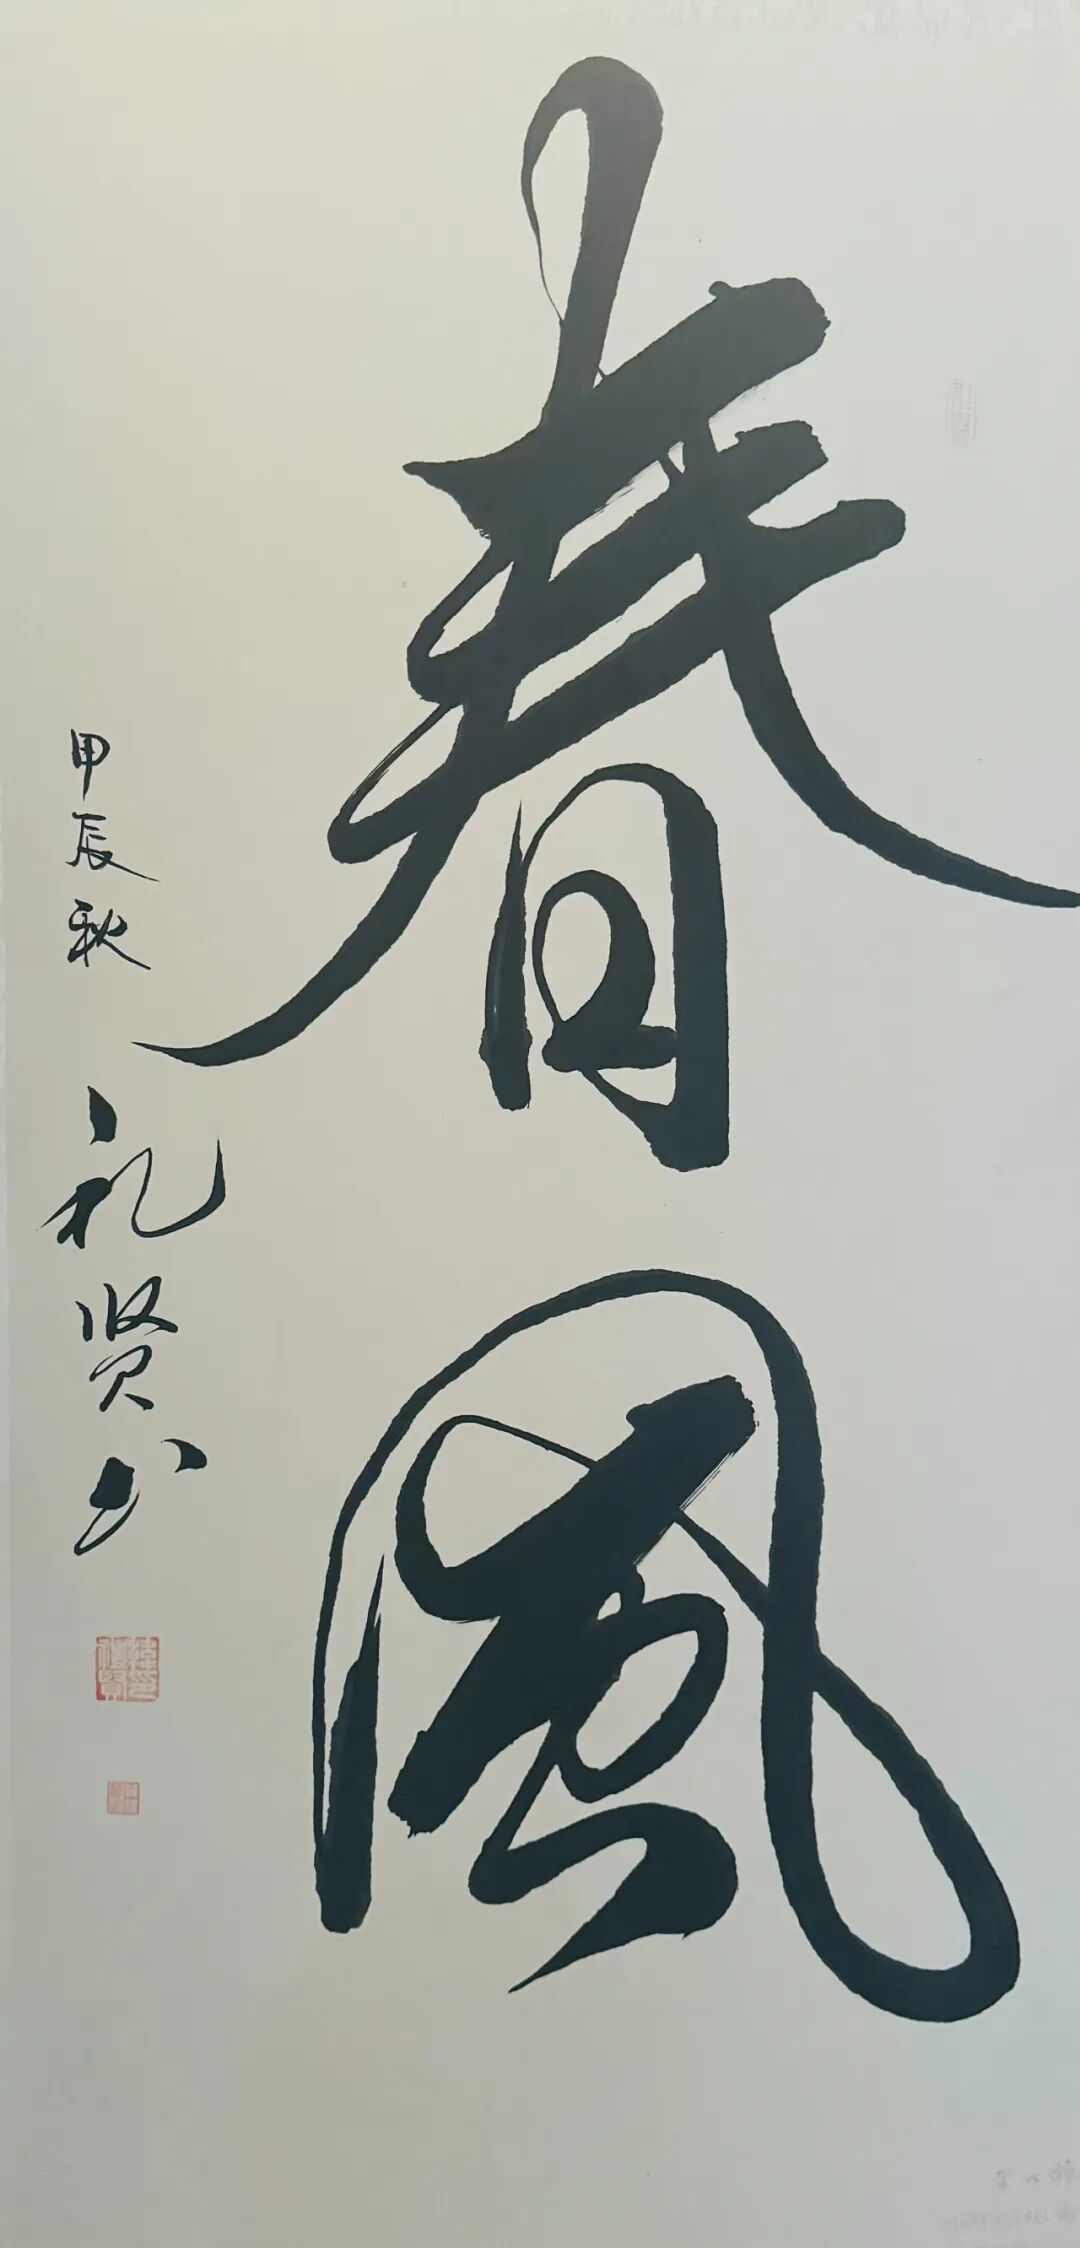 春风
甲辰秋 礼贤书